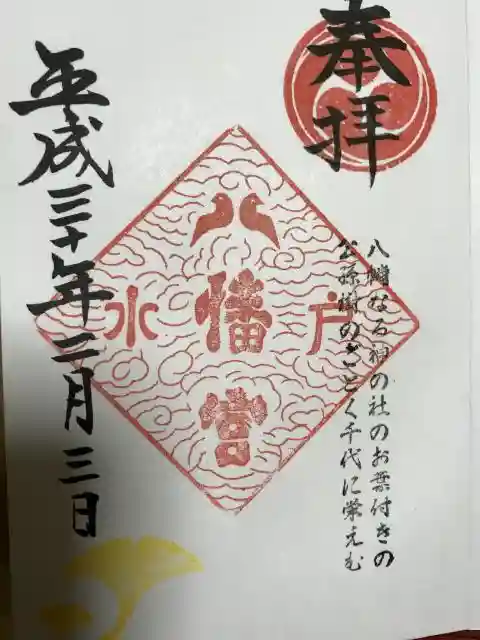 奉拝
八幡なる神の社のお葉付きの
公孫樹のごとく千代に栄えむ
水戸
八幡宮
平成三十年二月三日